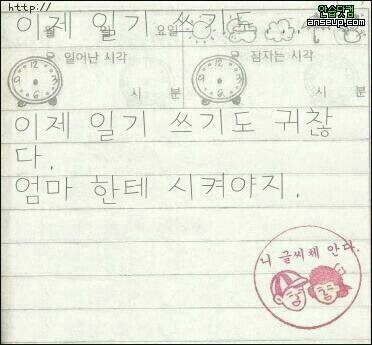 http://
안습닷컴
anseup.com
월 일 요일
이제 일기 쓰기도
일어난 시각 잠자는 시각
12 3 6 9 12 3 6 9
시 분 시 분
이제 일기 쓰기도 귀찮
다.
엄마 한테 시켜야지.
니 글씨체 안다.